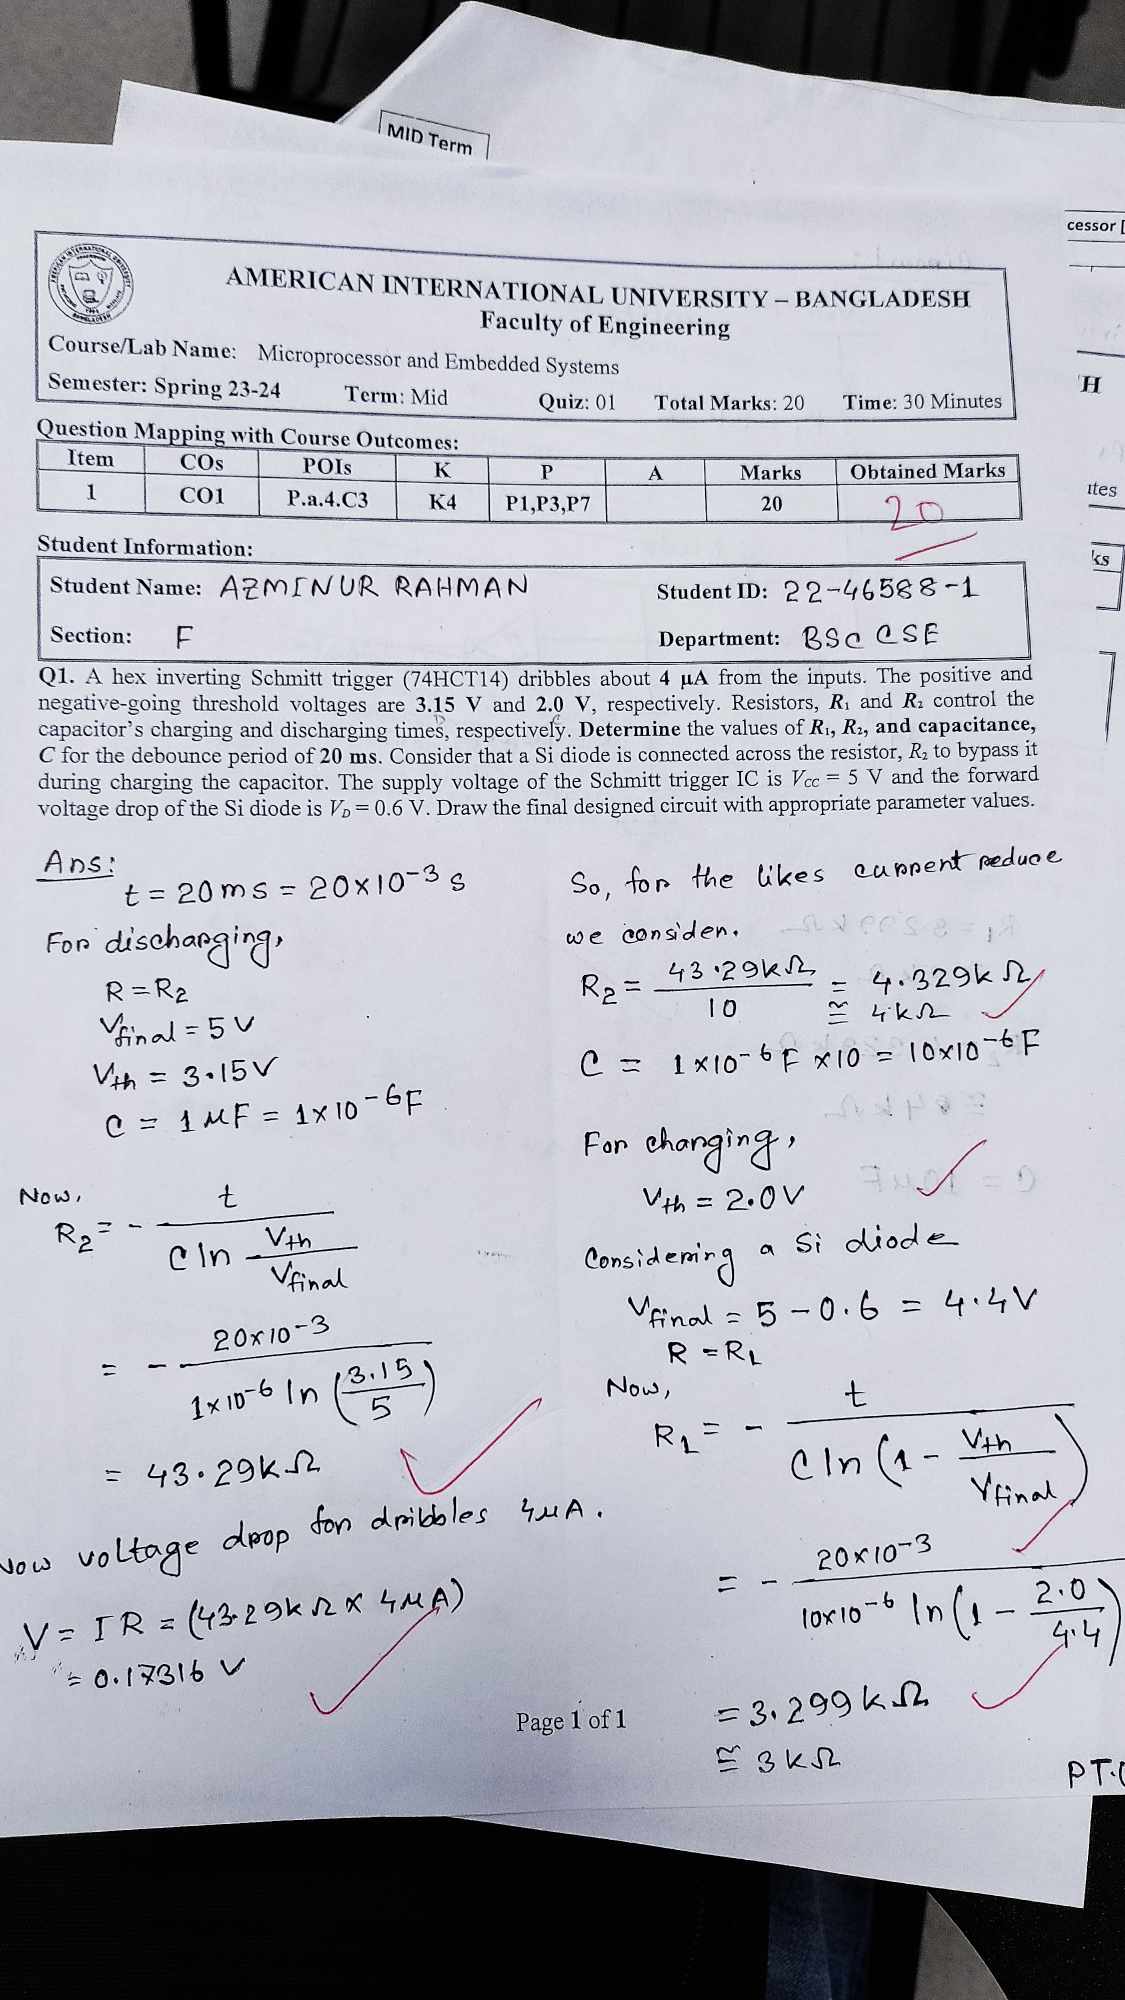 MID Term
cessor [
AMERICAN INTERNATIONAL UNIVERSITY – BANGLADESH
Faculty of Engineering
Course/Lab Name: Microprocessor and Embedded Systems
Semester: Spring 23-24 Term: Mid Quiz: 01 Total Marks: 20 Time: 30 Minutes
H
Question Mapping with Course Outcomes:
Item COs POIs K P A Marks Obtained Marks
1 CO1 P.a.4.C3 K4 P1,P3,P7 20 20
ites
ks
Student Information:
Student Name: AZMINUR RAHMAN Student ID: 22-46588-1
Section: F Department: BSc CSE
Q1. A hex inverting Schmitt trigger (74HCT14) dribbles about 4 µA from the inputs. The positive and
negative-going threshold voltages are 3.15 V and 2.0 V, respectively. Resistors, R₁ and R₂ control the
capacitor's charging and discharging times, respectively. Determine the values of R₁, R₂, and capacitance,
C for the debounce period of 20 ms. Consider that a Si diode is connected across the resistor, R₂ to bypass it
during charging the capacitor. The supply voltage of the Schmitt trigger IC is Vcc = 5 V and the forward
voltage drop of the Si diode is V_D = 0.6 V. Draw the final designed circuit with appropriate parameter values.
Ans:
t = 20ms = 20×10⁻³ s
For discharging,
R = R₂
Vfinal = 5 V
Vth = 3.15V
C = 1 µF = 1×10⁻⁶F
Now,
R₂ = - t / C ln Vth / Vfinal
= - 20×10⁻³ / 1×10⁻⁶ ln (3.15 / 5)
= 43.29kΩ
Now voltage drop for dribbles 4µA.
V = IR = (43.29kΩ × 4µA)
= 0.17316 V
So, for the likes current reduce
we consider.
R₂ = 43.29kΩ / 10 = 4.329kΩ
≅ 4kΩ
C = 1×10⁻⁶F ×10 = 10×10⁻⁶F
For charging,
Vth = 2.0V
Considering a Si diode
Vfinal = 5 – 0.6 = 4.4V
R = R₁
Now,
R₁ = - t / C ln (1 - Vth / Vfinal)
= - 20×10⁻³ / 10×10⁻⁶ ln (1 - 2.0 / 4.4)
= 3.299kΩ
≅ 3kΩ
Page 1 of 1